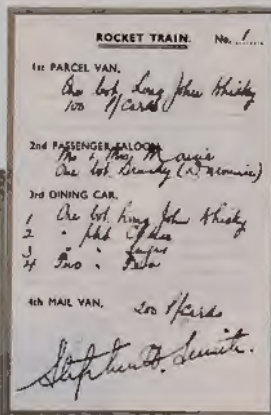 ROCKET TRAIN. No. 1
1st PARCEL VAN,
One bot. Long John Whisky
100 P/Cards
2nd PASSENGER SALOON
Mr & Mrs
One bot. Brandy
3rd DINING CAR,
1 One bot. Long John Whisky
2 " 
3 " 
4 Two "
4th MAIL VAN,
200 P/Cards
Stephen H. Smith.